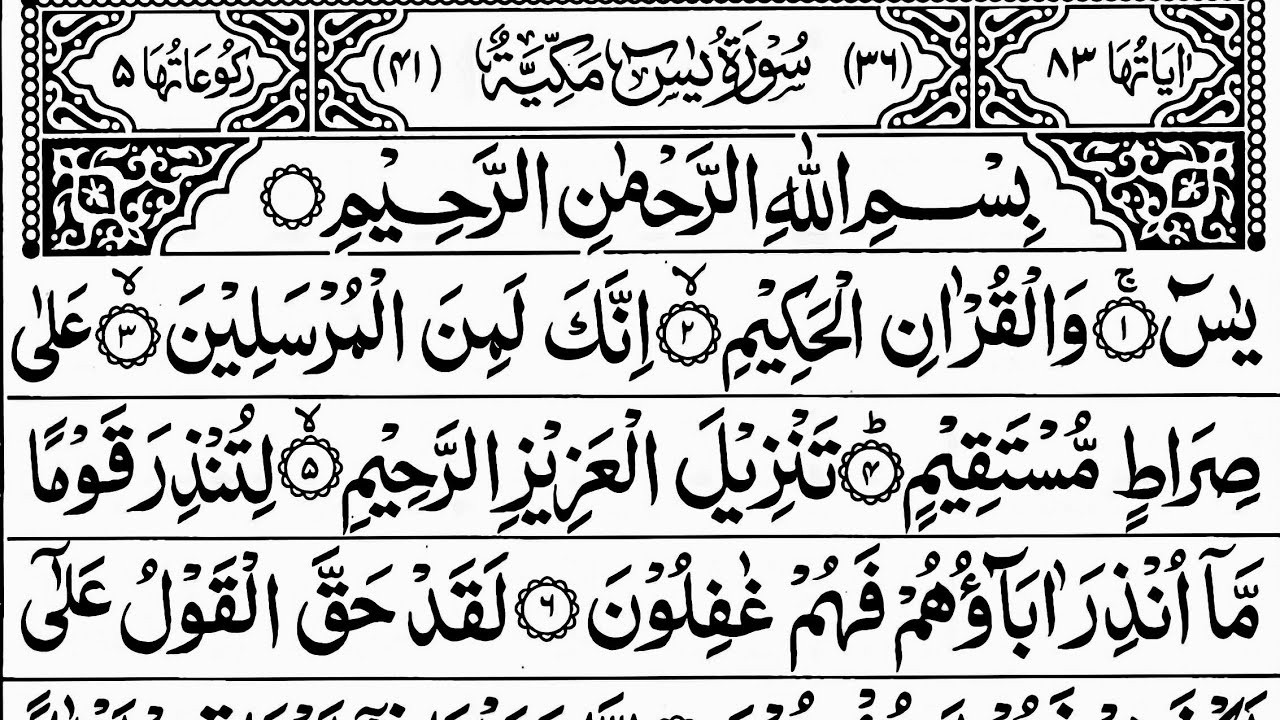 اٰيَاتُهَا ٨٣ (٣٦) سُوۡرَةُ يٰسٓ مَكِّيَّةٌ (۴۱) رُكُوۡعَاتُهَا ۵
بِسۡمِ اللّٰهِ الرَّحۡمٰنِ الرَّحِيۡمِ
يٰسٓ ۚ‏﴿۱﴾ وَالۡقُرۡاٰنِ الۡحَكِيۡمِ ۙ‏﴿۲﴾ اِنَّكَ لَمِنَ الۡمُرۡسَلِيۡنَ ۙ‏﴿۳﴾ عَلٰى
صِرَاطٍ مُّسۡتَقِيۡمٍ ؕ‏﴿۴﴾ تَنۡزِيۡلَ الۡعَزِيۡزِ الرَّحِيۡمِ ۙ‏﴿۵﴾ لِتُنۡذِرَ قَوۡمًا
مَّاۤ اُنۡذِرَ اٰبَآؤُهُمۡ فَهُمۡ غٰفِلُوۡنَ ﴿۶﴾ لَقَدۡ حَقَّ الۡقَوۡلُ عَلٰٓى